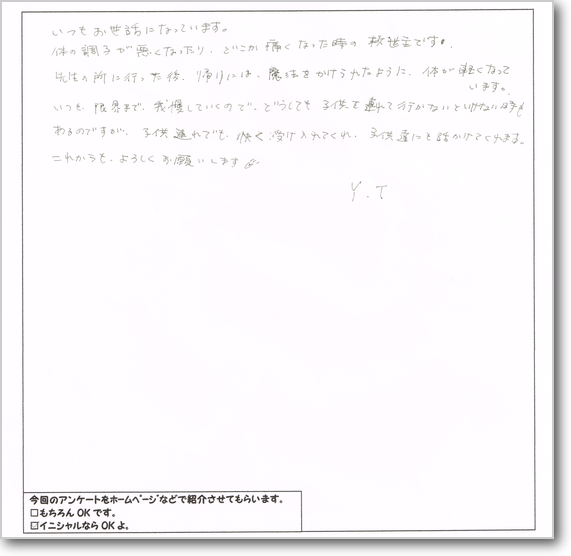 いつもお世話になっています。
体の調子が悪くなったり、どこか痛くなった時の救世主です!
先生の所に行った後、帰りには、魔法をかけられたように、体が軽くなって
います。
いつも限界まで、我慢していくので、どうしても子供を連れて行かないといけない時も
あるのですが、子供連れでも、快く受け入れてくれ、子供達にも話かけてくれます。
これからも、よろしくお願いします
Y.T
今回のアンケートをホームページなどで紹介させてもらいます。
□もちろんOKです。
☑イニシャルならOKよ。